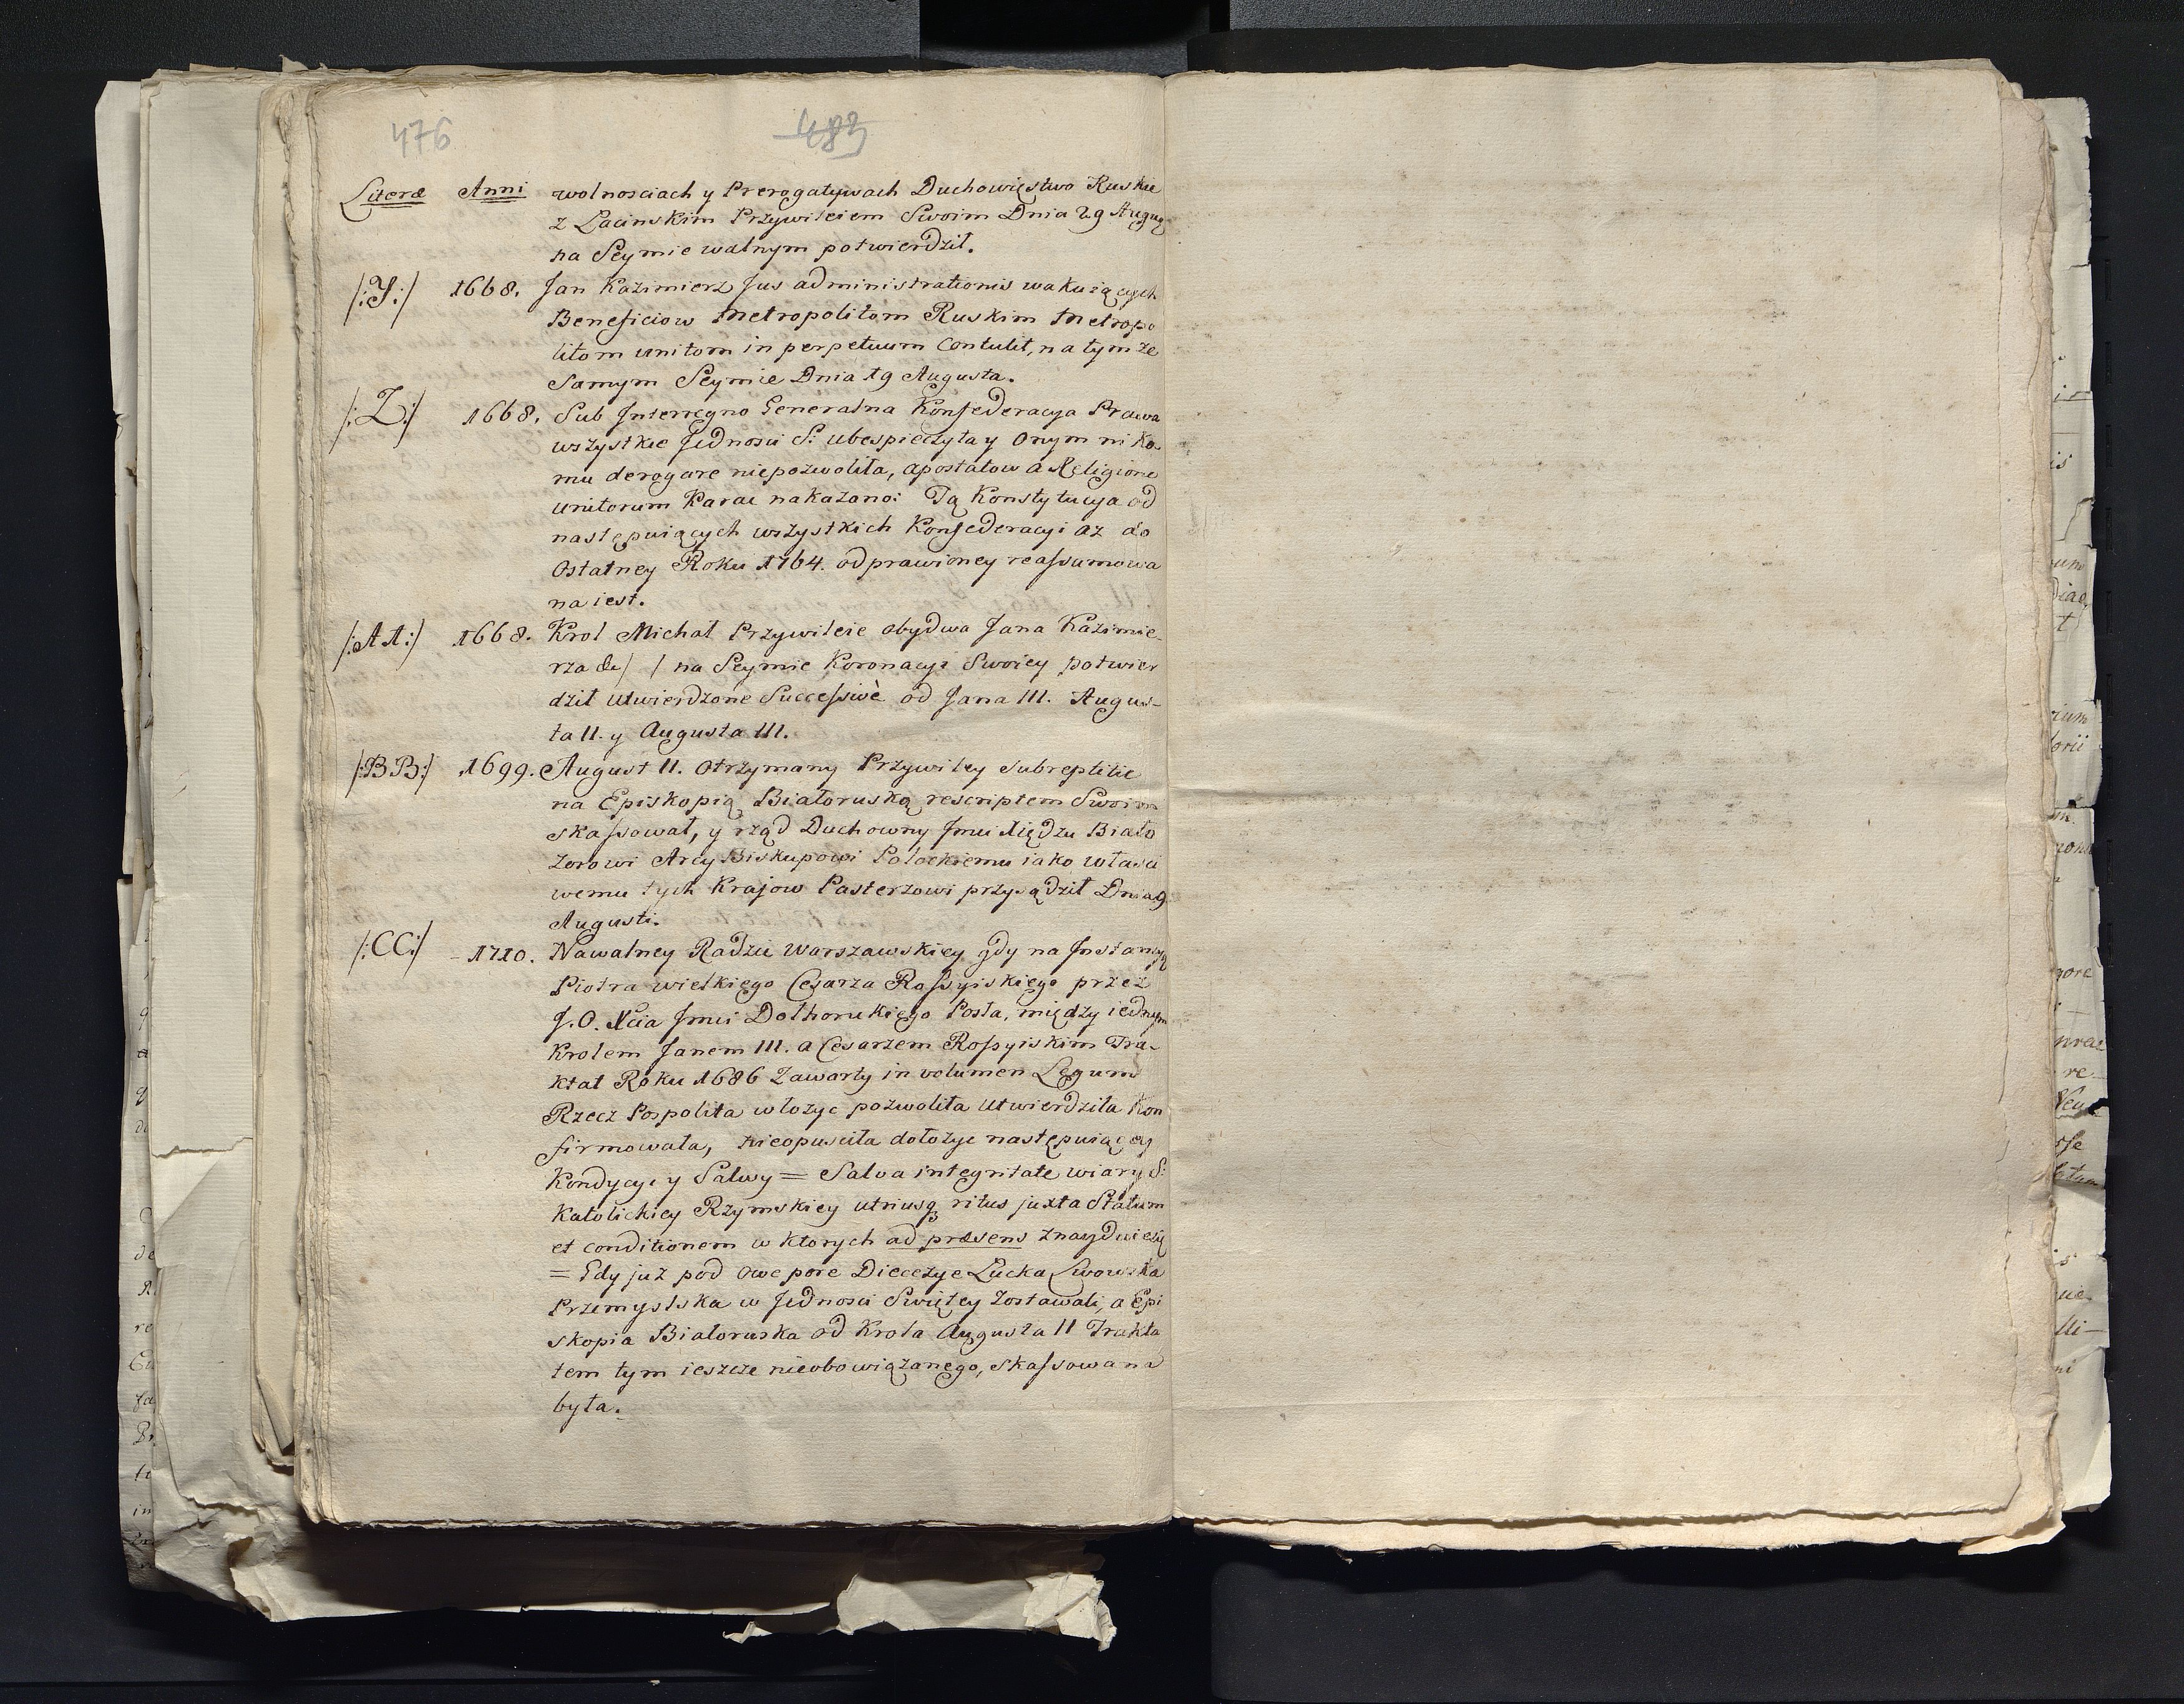 476 483
Literæ Anni wolnosciach y Prerogatywach Duchowięstwo Ruskie
z Łacinskim Przywileiem Swoim Dnia 29 Augus
na Seymie walnym potwierdził.
/:Y:/ 1668. Jan Kazimierz Jus administrationis wakuiących
Beneficiow Metropolitom Ruskim Metropo
litom unitom in perpetuum Contulit, na tymże
Samym Seymie Dnia 19 Augusta.
/:Z:/ 1668. Sub Interregno Generalna Konfederacya Prawa
wszystkie Jednosci S: ubespieczyła y Onym niko-
mu derogare niepozwoliła, apostatow a Religione
unitorum Karac nakazano: Tą Konstytucya od
następuiących wszystkich Konfederacyi az do
Ostatney Roku 1764. odprawioney reassumowa
na iest.
/:AA:/ 1668. Krol Michał Przywileie obydwa Jana Kazimie-
rza de/ / na Seymie Koronacyi Swoiey potwier
dził utwierdzone Successivè od Jana III. Augus-
ta II. y Augusta III.
/:BB:/ 1699. August II. Otrzymany Przywiley subreptitie
na Episkopią Białoruską rescriptem Swoim
skassował, y rząd Duchowny Jmci Xiędzu Biało
zorowi Arcy Biskupowi Połockiemu iako własci
wemu tych Krajow Pasterzowi przysądził Dnia 9
Augusti.
/:CC:/ - 1710. Nawalney Radzie Warszawskiey gdy na Instancyą
Piotra wielkiego Cesarza Rossyiskiego przez
J.O. Xcia Jmci Dolhorukiego Posła, między iednym
Krolem Janem III. a Cesarzem Rossyiskim Tra-
ktat Roku 1686 Zawarty in volumen Legum
Rzecz Pospolita włożyc pozwoliła utwierdziła Kon
firmowała, nieopusciła dołożyc następuiącey
Kondycyi y Salwy = Salva integritate wiary S:
Katolickiey Rzymskiey utriusq3 ritus juxta Statum
et conditionem w ktorych ad præsens znayduie się
= Gdy już pod Owe pore Diecezye Łucka Lwowska
Przemyslska w Jednosci Swiętey Zostawali, a Epi
skopia Białoruska od Krola Augusta II Trakta
tem tym ieszcze nieobowiązanego, skassowana
była.